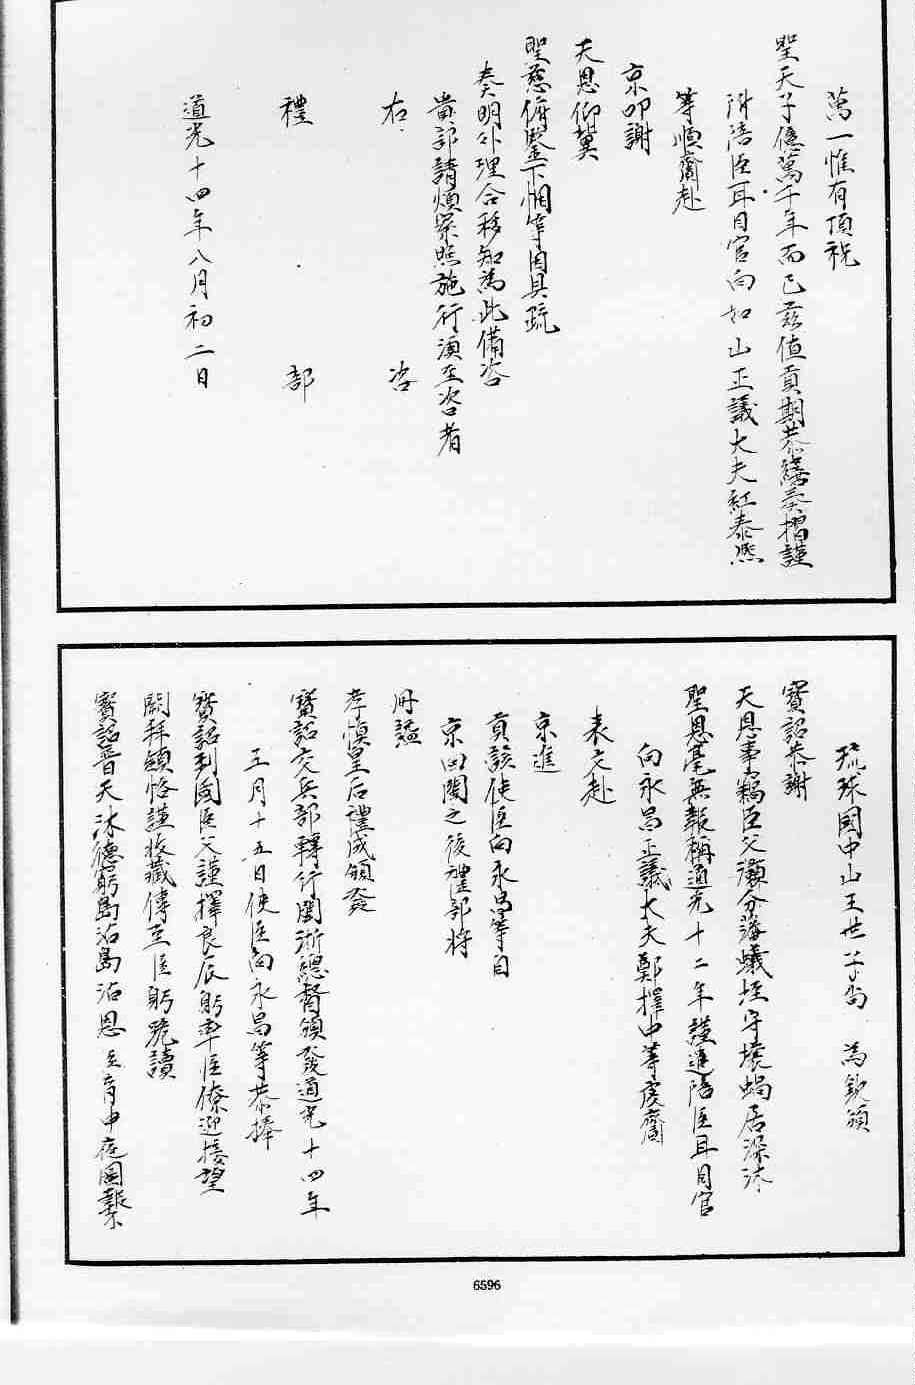 萬一惟有頂祝
聖天子億萬千年而已茲值貢期恭繕奏摺謹
附陪臣耳目官向如山正議大夫紅泰熙
等順齎赴
京叩謝
天恩仰冀
聖慈俯鑒下悃等因具疏
奏明外理合移知為此備咨
貴部請煩察照施行須至咨者
右 咨
禮 部
道光十四年八月初二日
琉球國中山王世子尚 為欽頒
寶詔恭謝
天恩事竊臣父灝分藩蟻垤守壤蝸居深沐
聖恩毫無報稱道光十二年謹遣陪臣耳目官
向永昌正議大夫鄭擇中等虔齎
表文赴
京進
貢該使臣向永昌等自
京回閩之後禮部將
冊謚
孝慎皇后禮成頒發
寶詔交兵部轉行閩浙總督頒發道光十四年
三月十五日使臣向永昌等恭捧
寶詔到國臣父謹擇良辰躬率臣僚迎接望
闕拜頒恪謹收藏傳至臣躬跪讀
寶詔普天沐德窮島沾恩中夜圖報
6596